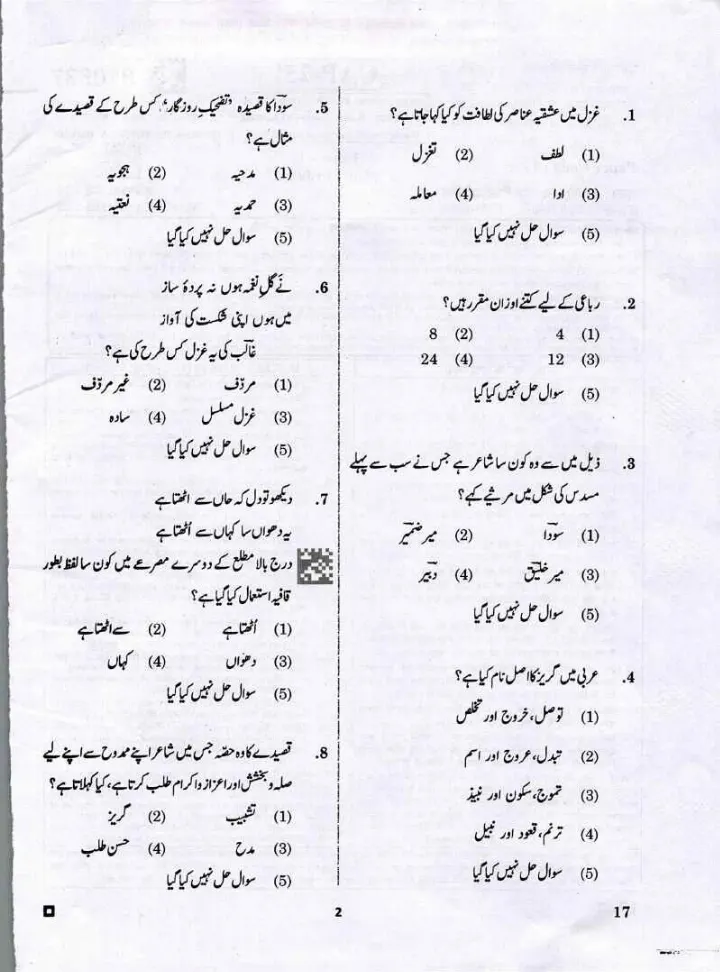 1. غزل میں عشقیہ عناصر کی لطافت کو کیا کہا جاتا ہے؟
(1) لطف (2) تغزل
(3) ادا (4) معاملہ
(5) سوال حل نہیں کیا گیا
2. رباعی کے لیے کتنے اوزان مقرر ہیں؟
(1) 4 (2) 8
(3) 12 (4) 24
(5) سوال حل نہیں کیا گیا
3. ذیل میں سے وہ کون سا شاعر ہے جس نے سب سے پہلے
مسدس کی شکل میں مرثیے کہے؟
(1) سوداؔ (2) میر ضمیرؔ
(3) میر خلیقؔ (4) دبیرؔ
(5) سوال حل نہیں کیا گیا
4. عربی میں گریز کا اصل نام کیا ہے؟
(1) توصل، خروج اور تخلص
(2) تبدل، عروج اور اسم
(3) تموج، سکون اور نبیذ
(4) ترنم، قعود اور نبیل
(5) سوال حل نہیں کیا گیا
5. سوداؔ کا قصیدہ ’تضحیک روزگار‘ کس طرح کے قصیدے کی
مثال ہے؟
(1) مدحیہ (2) ہجویہ
(3) حمدیہ (4) نعتیہ
(5) سوال حل نہیں کیا گیا
6. نے گلِ نغمہ ہوں نہ پردۂ ساز
میں ہوں اپنی شکست کی آواز
غالبؔ کی یہ غزل کس طرح کی ہے؟
(1) مردّف (2) غیر مردّف
(3) غزل مسلسل (4) سادہ
(5) سوال حل نہیں کیا گیا
7. دیکھو تو دل کہ جاں سے اٹھتا ہے
یہ دھواں سا کہاں سے اُٹھتا ہے
درج بالا مطلع کے دوسرے مصرعے میں کون سا لفظ بطور
قافیہ استعمال کیا گیا ہے؟
(1) اُٹھتا ہے (2) سے اٹھتا ہے
(3) دھواں (4) کہاں
(5) سوال حل نہیں کیا گیا
8. قصیدے کا وہ حصّہ جس میں شاعر اپنے ممدوح سے اپنے لیے
صلہ و بخشش اور اعزاز و اکرام طلب کرتا ہے، کیا کہلاتا ہے؟
(1) تشبیب (2) گریز
(3) مدح (4) حسن طلب
(5) سوال حل نہیں کیا گیا
2
17